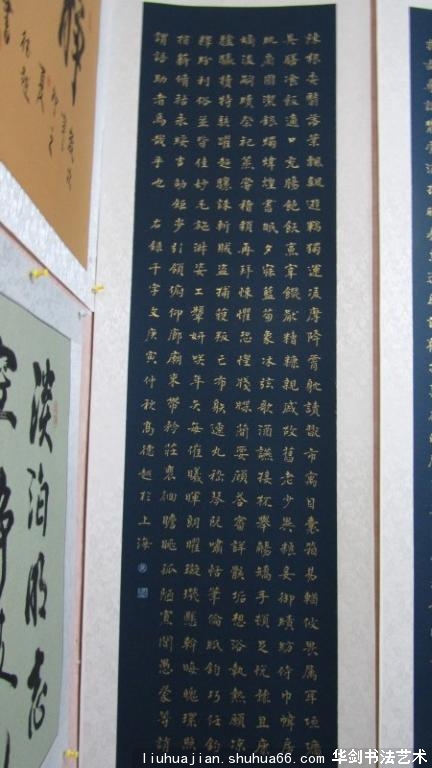 陳根委翳落葉飄颻遊鵾獨運凌摩降霄耽讀翫市寓目囊箱易輶攸畏属耳垣墻
具膳飡飯適口充腸飽飫烹宰饑厭糟糠親戚故舊老少異粮妾御績紡侍巾帷房
紈扇圓潔銀燭煒煌晝眠夕寐藍筍象床弦歌酒讌接杯舉觴矯手頓足悦豫且康
嫡後嗣續祭祀蒸嘗稽顙再拜悚懼恐惶牋牒簡要顧答審詳骸垢想浴執熱願凉
驢騾犢特駭躍超驤誅斬賊盜捕獲叛亡布射遼丸嵇琴阮嘯恬筆倫紙鈞巧任釣
釋紛利俗並皆佳妙毛施淑姿工顰妍咲年矢每催曦暉朗曜璇璣懸斡晦魄環照
指薪脩祜永綏吉劭矩步引領俯仰廊廟束帶矜莊裵徊瞻眺孤陋寡聞愚蒙等誚
謂語助者焉哉乎也 右錄千字文庚寅仲秋高德超於上海
淡泊明志
liuhuajian.shuhua66.com 华剑书法艺术